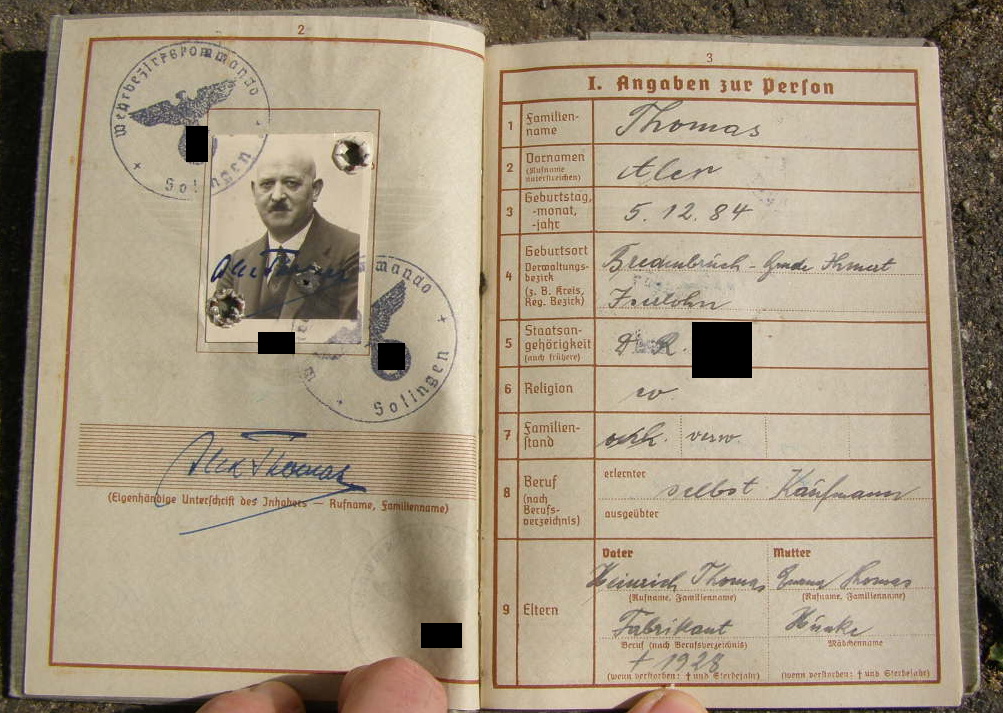 2
Wehrbezirkskommando
Solingen
mando
Solingen
Alex Thomas
(Eigenhändige Unterschrift des Inhabers — Rufname, Familienname)
3
I. Angaben zur Person
1 Familien-
name
Thomas
2 Vornamen
(Rufname
unterstreichen)
Alex
3 Geburtstag,
-monat,
-jahr
5. 12. 84
4 Geburtsort
Verwaltungs-
bezirk
(z. B. Kreis,
Reg. Bezirk)
Iserlohn
5 Staatsan-
gehörigkeit
(auch frühere)
D. R.
6 Religion
ev.
7 Familien-
stand
verh. verw.
8 Beruf
(nach
Berufs-
verzeichnis)
erlernter
selbst. Kaufmann
ausgeübter
9 Eltern
Vater Mutter
Heinrich Thomas Emma Thomas
(Rufname, Familienname) (Rufname, Familienname)
Fabrikant
Beruf (nach Berufsverzeichnis) Mädchenname
† 1928
(wenn verstorben: † und Sterbejahr) (wenn verstorben: † und Sterbejahr)